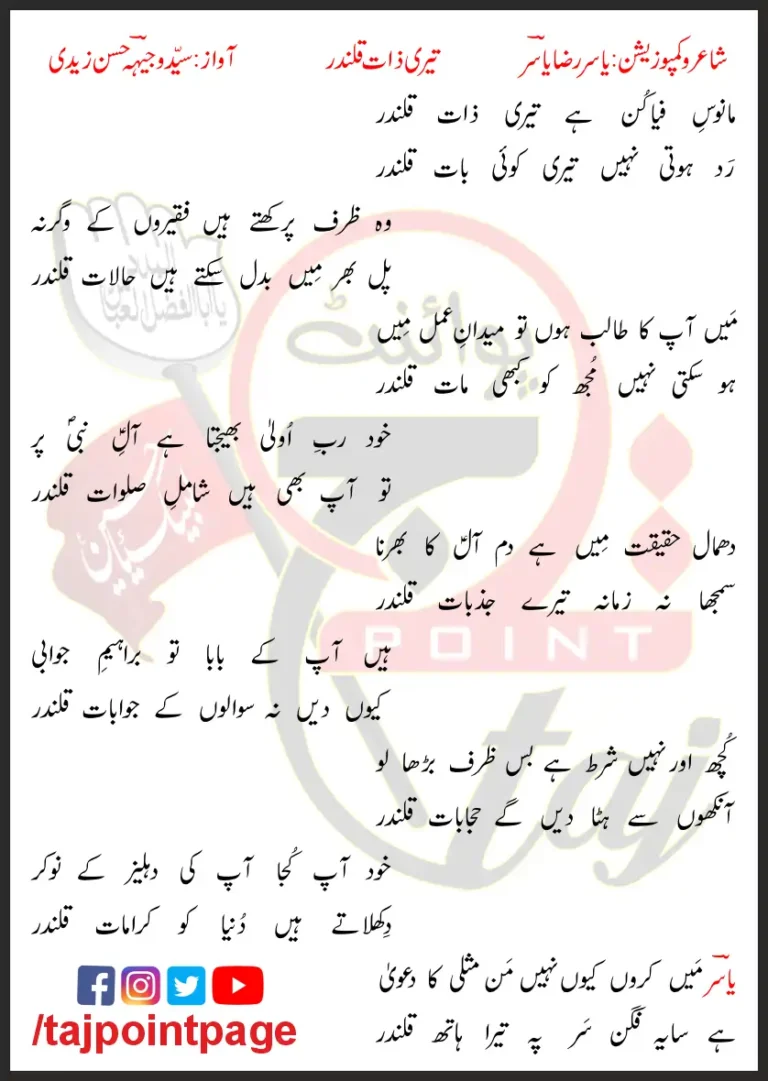 شاعر و کمپوزیشن: یاسر رضا یاسرؔ تیری ذات قلندر آواز: سیّد وجیہہ حسن زیدی
مانوسِ فیاکُن ہے تیری ذات قلندر
رَد ہوتی نہیں تیری کوئی بات قلندر
وہ ظرف پرکھتے ہیں فقیروں کے وگرنہ
پل بھر مِیں بدل سکتے ہیں حالات قلندر
مَیں آپ کا طالب ہوں تو میدانِ عمل مِیں
ہو سکتی نہیں مُجھ کو کبھی مات قلندر
خود ربِ اُولیٰ بھیجتا ہے آلِؑ نبیؐ پر
تو آپ بھی ہیں شاملِ صلوات قلندر
دھمال حقیقت مِیں ہے دم آلؑ کا بھرنا
سمجھا نہ زمانہ تیرے جذبات قلندر
ہیں آپ کے بابا تو براہیمِ جوابی
کیوں دیں نہ سوالوں کے جوابات قلندر
کُچھ اور نہیں شرط ہے بس ظرف بڑھا لو
آنکھوں سے ہٹا دیں گے حجابات قلندر
خود آپ کُجا آپ کی دہلیز کے نوکر
دِکھلاتے ہیں دُنیا کو کرامات قلندر
یاسرؔ مَیں کروں کیوں نہیں مَن مثلی کا دعویٰ
ہے سایہ فگن سَر پہ تیرا ہاتھ قلندر
/tajpointpage
پوائنٹ
تاج
POINT
taj
لبیک یا حسینؑ
یا ابا الفضل العباس